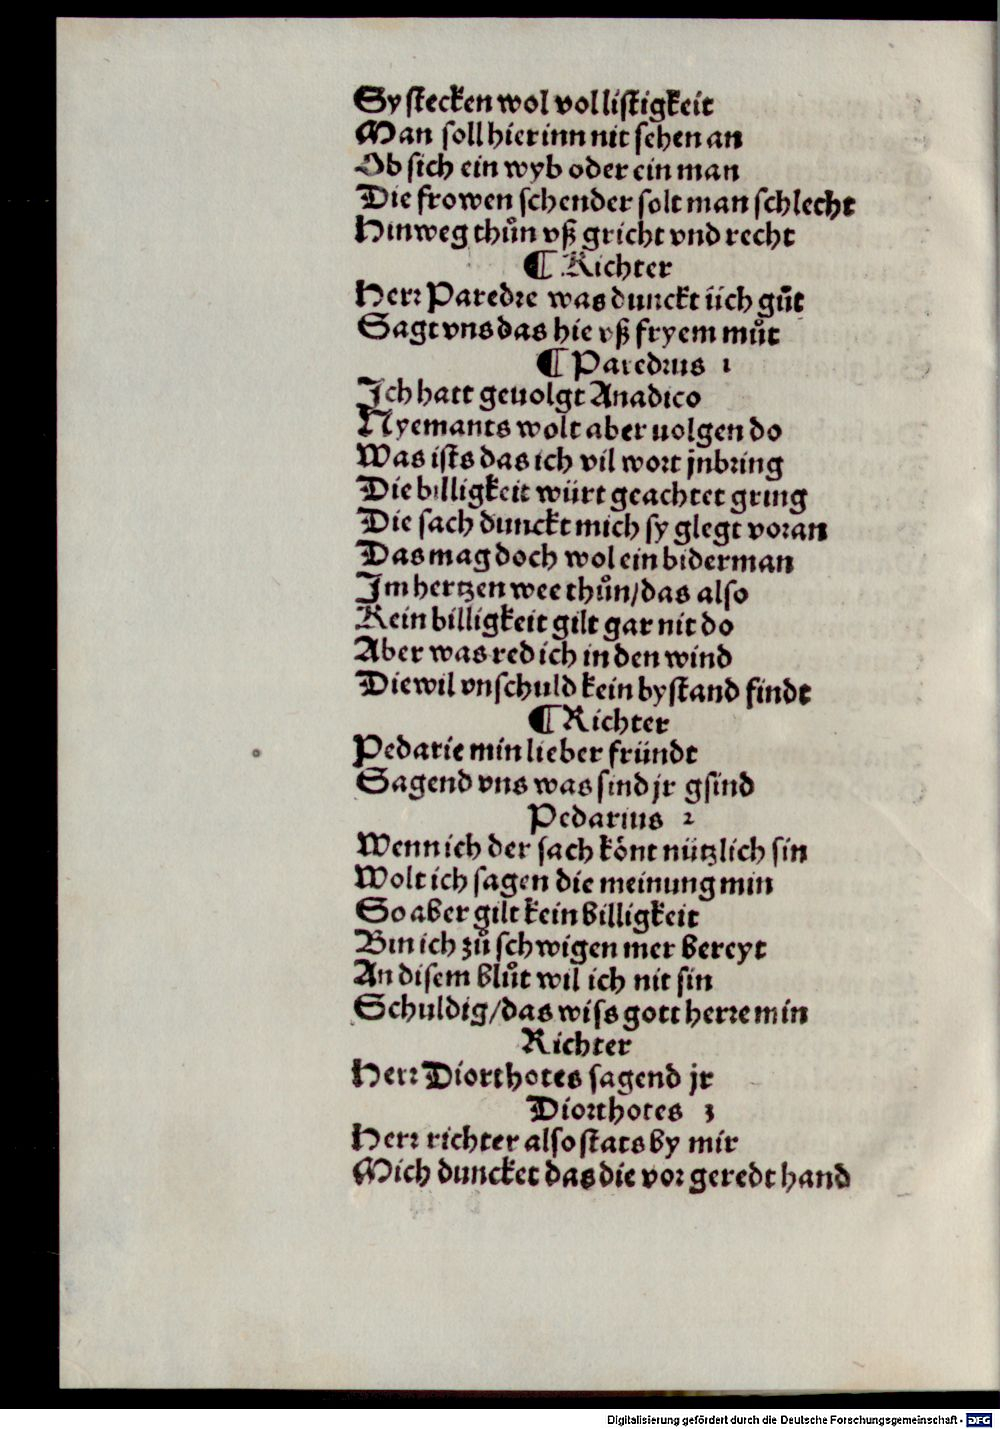 Sy stecken wol vol listigkeit
Man soll hierinn nit sehen an
Ob sich ein wyb oder ein man
Die frowen schender solt man schlecht
Hinweg thůn vß gricht vnd recht
¶ Richter
Herr Paredre was dunckt üch gůt
Sagt vns das hie vß fryem můt
¶ Paredrus 1
Ich hatt geuolgt Anadico
Nyemants wolt aber uolgen do
Was ists das ich vil wort jnbring
Die billigkeit würt geachtet gring
Die sach dunckt mich sy glegt voran
Das mag doch wol ein biderman
Im hertzen wee thůn/das also
Kein billigkeit gilt gar nit do
Aber was red ich in den wind
Diewil vnschuld kein bystand findt
¶ Richter
Pedarie min lieber fründt
Sagend vns was sind jr gsind
Pedarius 2
Wenn ich der sach könt nützlich sin
Wolt ich sagen die meinung min
So aber gilt kein billigkeit
Bin ich zů schwigen mer bereyt
An disem blůt wil ich nit sin
Schuldig/das wiss gott herre min
Richter
Herr Diorthotes sagend jr
Diorthotes 3
Herr richter also stats by mir
Mich duncket das die vor geredt hand
Digitalisierung gefördert durch die Deutsche Forschungsgemeinschaft - DFG